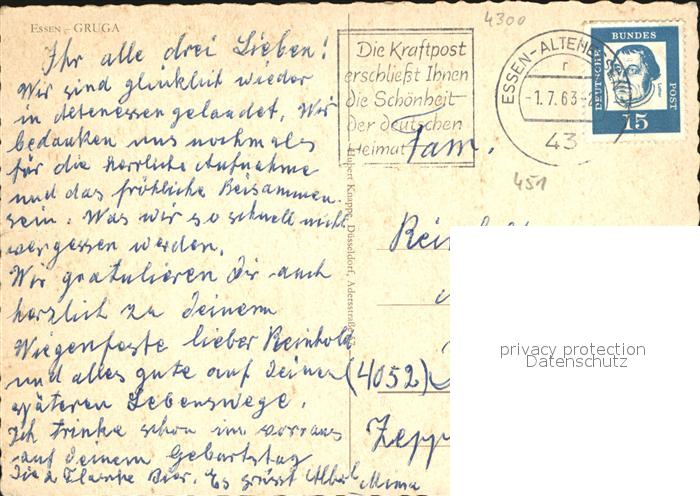 Essen - GRUGA
Ihr alle drei Lieben!
Wir sind glücklich wieder
in Altenessen gelandet. Wir
bedanken uns nochmals
für die herrliche Aufnahme
und das fröhliche Beisammen-
sein. Was wir so schnell nicht
vergessen werden.
Wir gratulieren Dir auch
herzlich zu Deinem
Wiegenfeste lieber Reinhold
und alles gute auf Deinen
späteren Lebenswege.
Ich trinke schon im vorraus
auf Deinem Geburtstag
Flasche Bier. Es grüsst Albert Mima
Hubert Knappe, Düsseldorf, Adersstraße
4300
Die Kraftpost
erschließt Ihnen
die Schönheit
der deutschen
Heimat
ESSEN-ALTENE
-1.7.63-
43
DEUTSCHE BUNDES POST
15
451
Fam.
Rein
(4052)
Zepp
privacy protection
Datenschutz